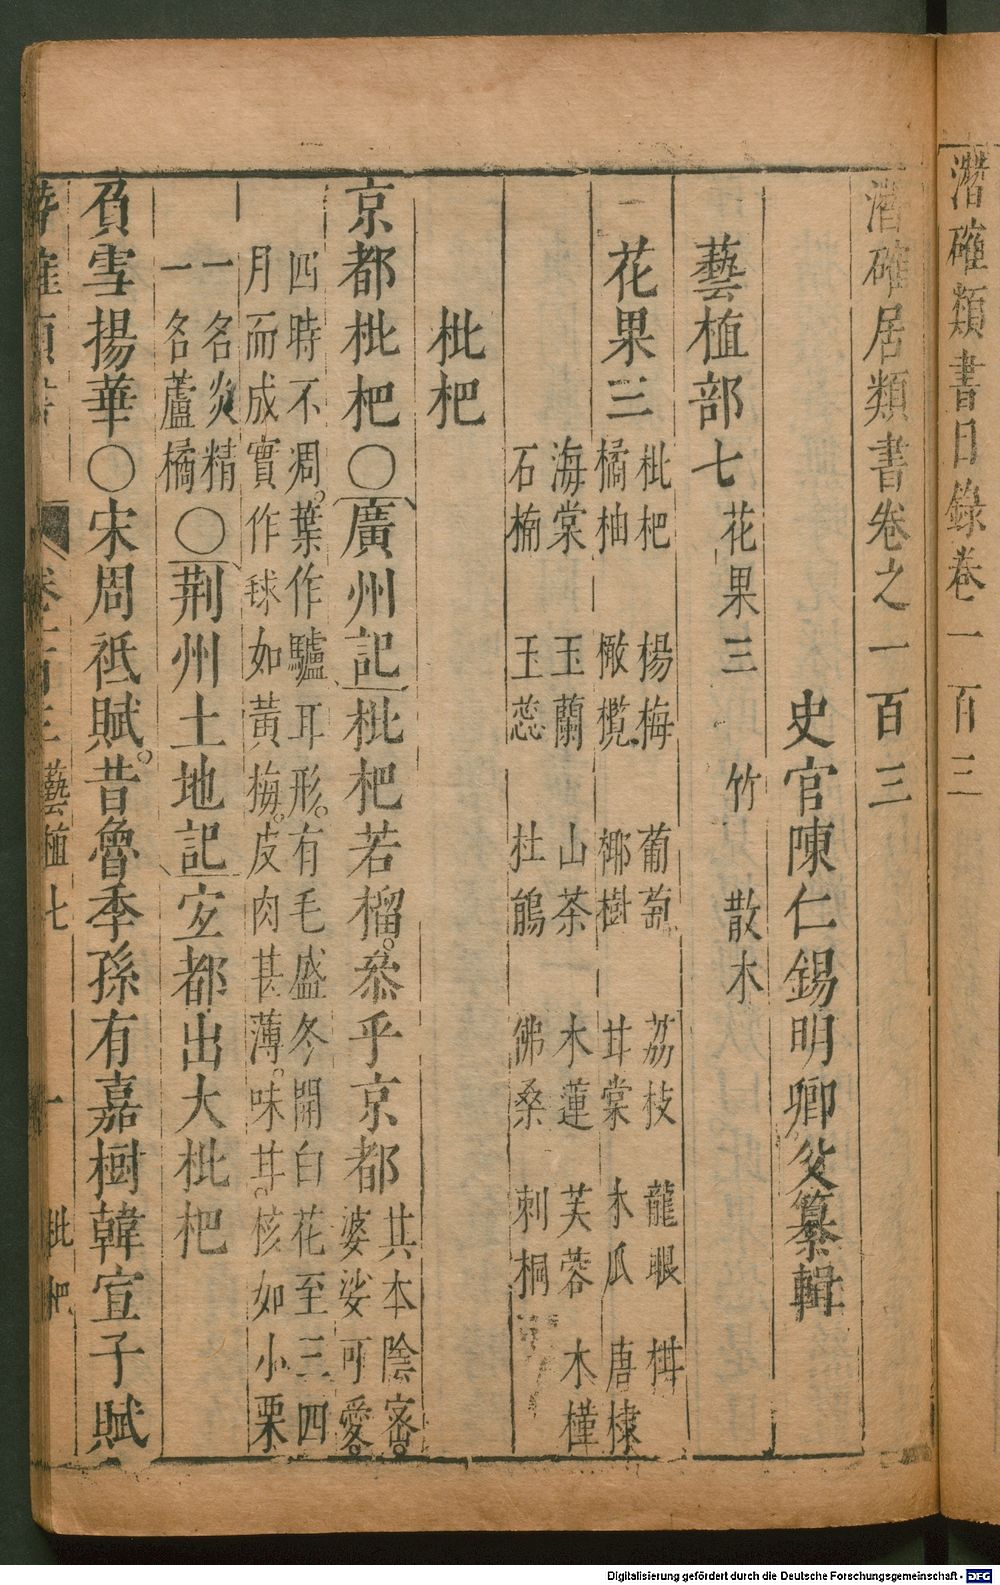 潛確類書目錄卷一百三
潛確居類書卷之一百三
史官陳仁錫明卿父纂輯
藝植部七 花果三 竹 散木
花果三
枇杷 楊梅 葡萄 荔枝 龍眼 棋
橘柚 橄欖 椰樹 甘棠 木瓜 唐棣
海棠 玉蘭 山茶 木蓮 芙蓉 木槿
石楠 玉蕊 杜鵑 佛桑 刺桐
枇杷
京都枇杷○廣州記枇杷若榴。叅乎京都
其本陰密。
婆娑可愛。
四時不凋。葉作驢耳形。有毛盛冬開白花至三四
月而成實作毬如黃梅。皮肉甚薄。味甘。核如小栗
一名炎精
一名蘆橘
○荆州土地記宐都出大枇杷
負雪揚華○宋周祗賦。昔魯季孫有嘉樹韓宣子賦
卷一百三 藝植七 一 枇杷
Digitalisierung gefördert durch die Deutsche Forschungsgemeinschaft - DFG